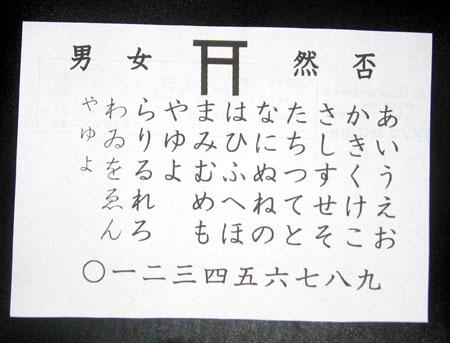 男 女 然 否
あいうえお
かきくけこ
さしすせそ
たちつてと
なにぬねの
はひふへほ
まみむめも
やゆよ
らりるれろ
わゐをゑん
ゃゅょ
〇一二三四五六七八九